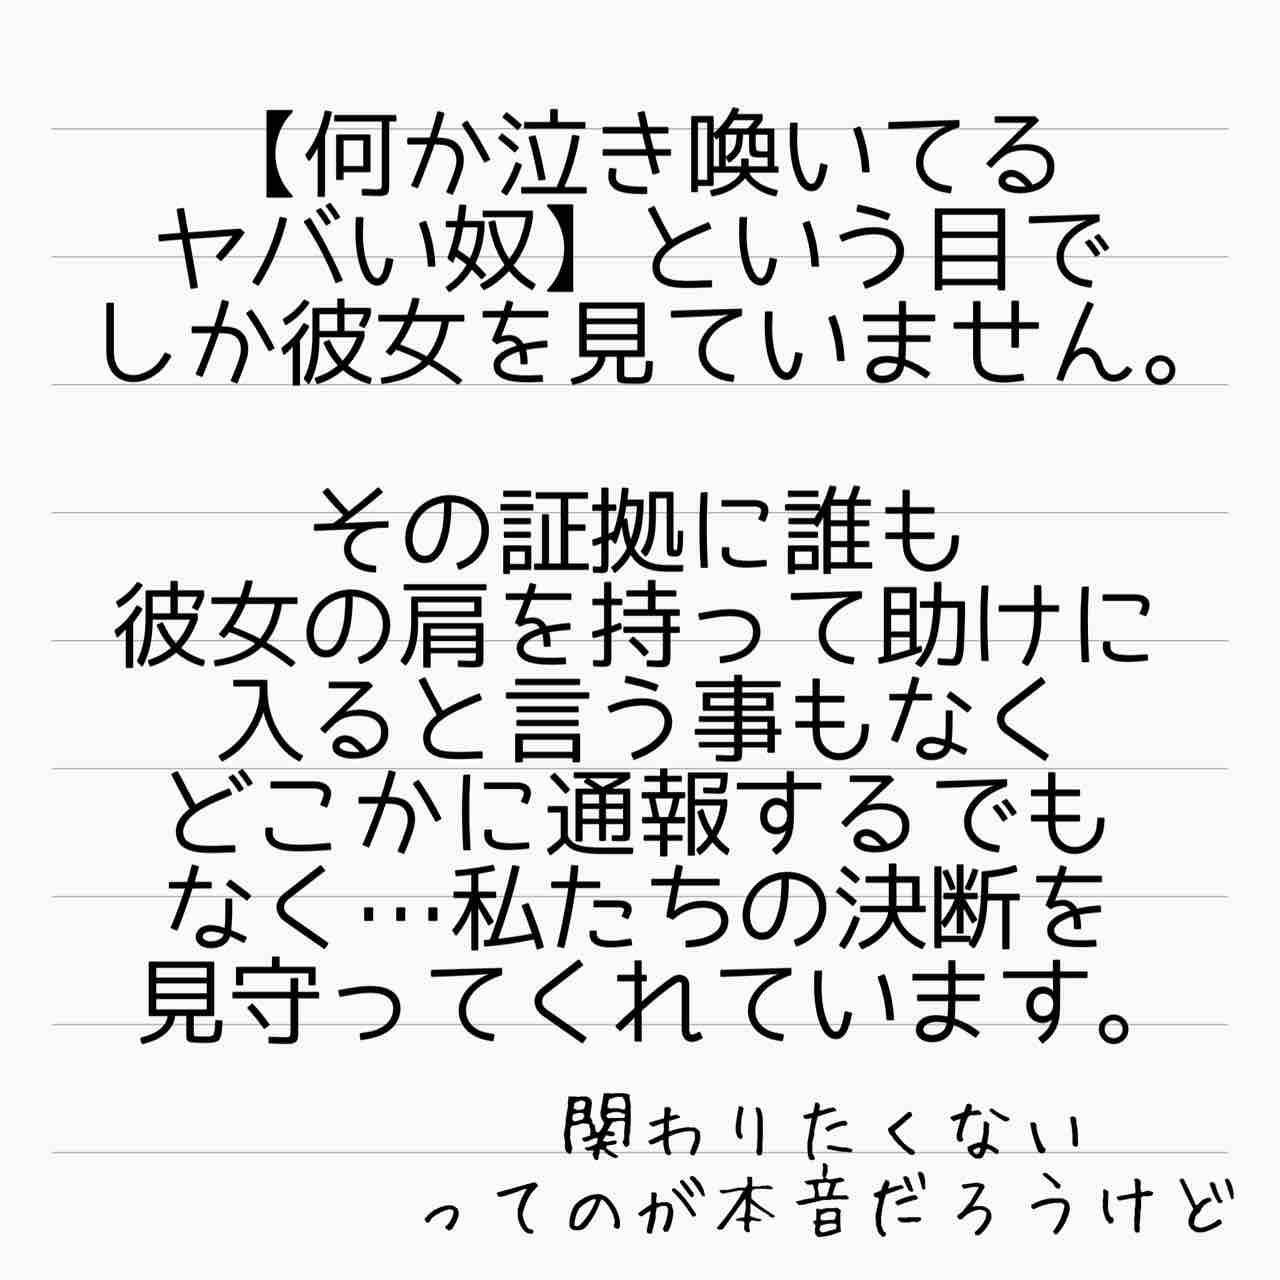 【何か泣き喚いてる
ヤバい奴】という目で
しか彼女を見ていません。
その証拠に誰も
彼女の肩を持って助けに
入ると言う事もなく
どこかに通報するでも
なく…私たちの決断を
見守ってくれています。
関わりたくない
ってのが本音だろうけど